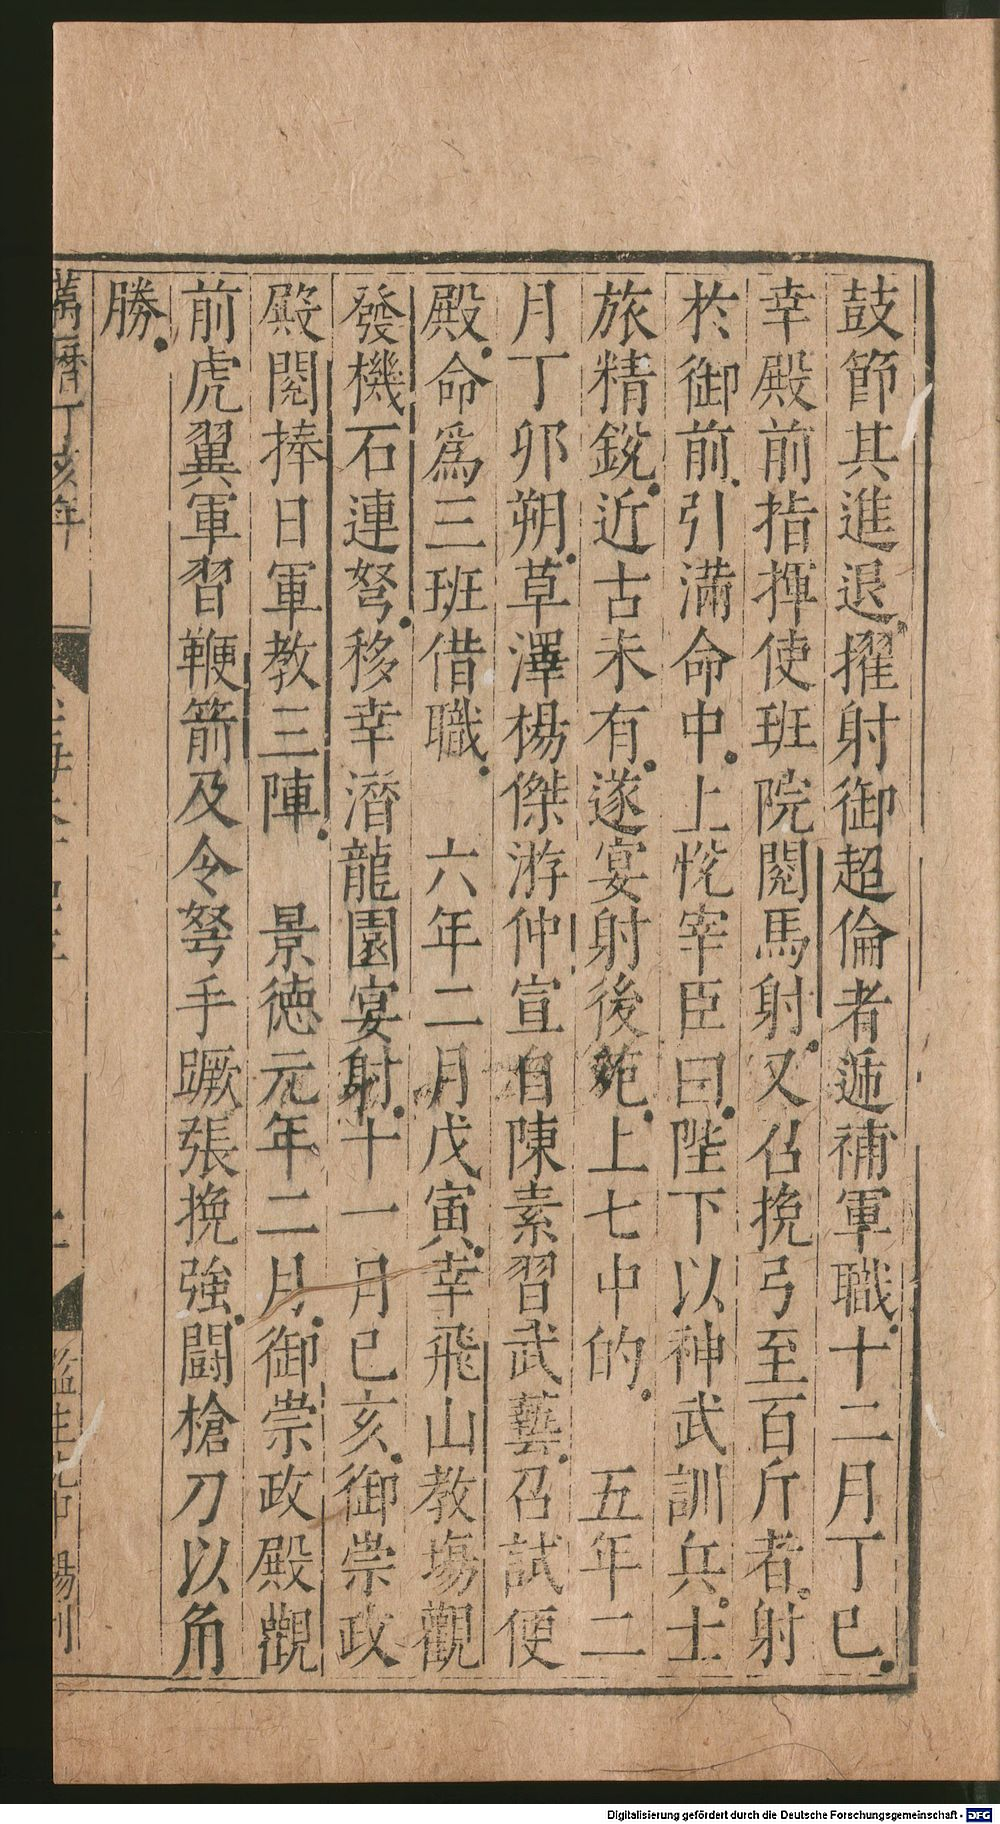 鼓節其進退擢射御超倫者遞補軍職十二月丁巳
幸殿前指揮使班院閱馬射又召挽弓至百斤者射
於御前引滿命中上悅宰臣曰陛下以神武訓兵士
旅精銳近古未有遂宴射後苑上七中的　五年二
月丁卯朔草澤楊傑游仲宣自陳素習武藝召試便
殿命為三班借職　六年二月戊寅幸飛山教塲觀
發機石連弩移幸潛龍園宴射十一月已亥御崇政
殿閱捧日軍教三陣　景德元年二月御崇政殿觀
前虎翼軍習鞭箭及令弩手蹶張挽強鬪槍刀以角
勝
萬曆丁亥年
監生 楊刊
Digitalisierung gefördert durch die Deutsche Forschungsgemeinschaft - DFG